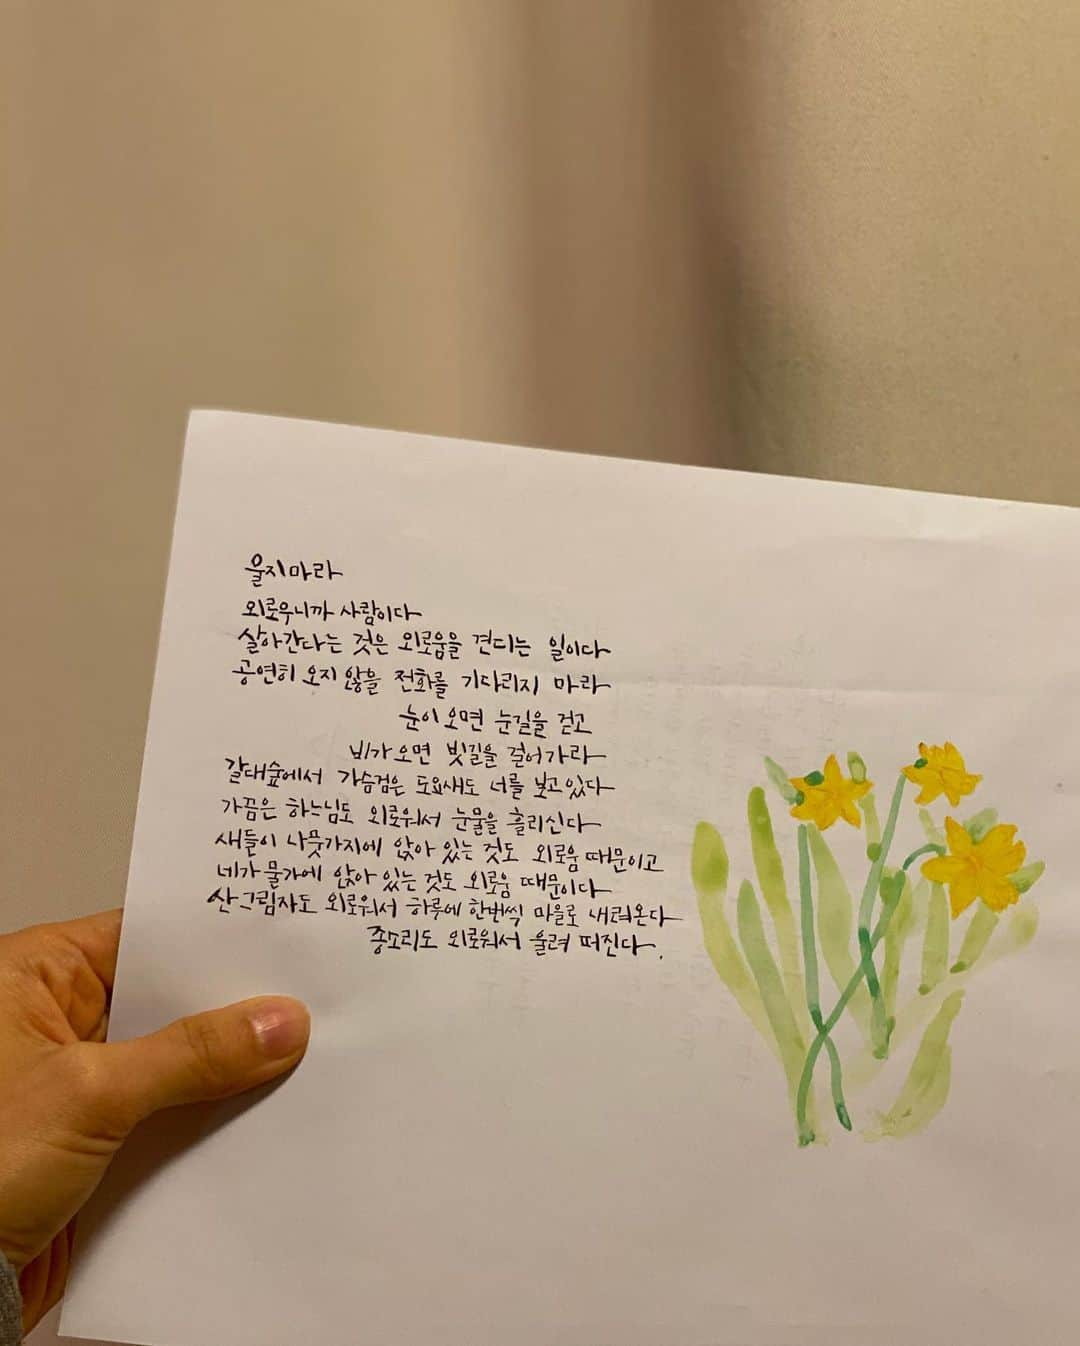 울지마라
외로우니까 사람이다
살아간다는 것은 외로움을 견디는 일이다
공연히 오지 않을 전화를 기다리지 마라
눈이 오면 눈길을 걷고
비가 오면 빗길을 걸어가라
갈대숲에서 가슴검은 도요새도 너를 보고 있다
가끔은 하느님도 외로워서 눈물을 흘리신다
새들이 나뭇가지에 앉아 있는 것도 외로움 때문이고
네가 물가에 앉아 있는 것도 외로움 때문이다
산그림자도 외로워서 하루에 한번씩 마을로 내려온다
종소리도 외로워서 울려 퍼진다.